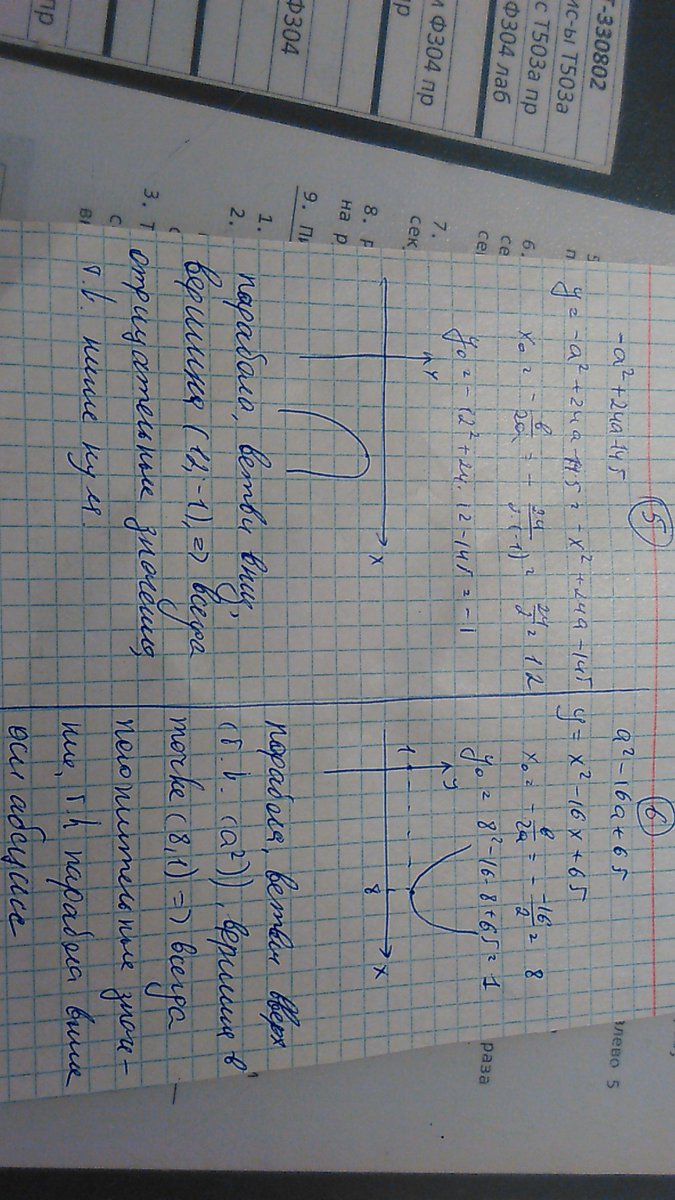 Т-330802
ис-ы Т503а
с Т503а пр
Ф304 лаб
и Ф304 пр
пр
Ф304
пр
6.
7.
сек
8.
на р
9. Пи
1.
2.
3. Т
с
влево 5
раза
5
-a² + 24a - 145
y = -a² + 24a - 145 = -x² + 24a - 145
x₀ = - в/2a = - 24/2·(-1) = 24/2 = 12
y₀ = -12² + 24 · 12 - 145 = -1
y
x
парабола, ветви вниз,
вершина (12,-1), => всегда
отрицательные значения,
т.к. ниже нуля.
6
a² - 16a + 65
y = x² - 16x + 65
x₀ = - в/2a = - -16/2 = 8
y₀ = 8² - 16·8 + 65 = 1
y
1
8
x
парабола, ветви вверх
(т.к. (a²)), вершина в
точке (8,1) => всегда
положительные значе-
ние, т.к парабола выше
оси абсцисс